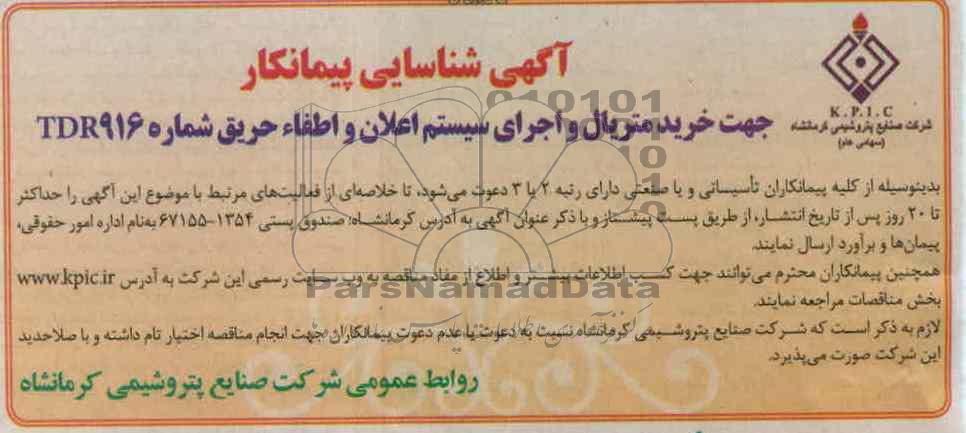 آگهی شناسایی پیمانکار
جهت خرید متریال و اجرای سیستم اعلان و اطفاء حریق شماره TDR۹۱۶
K.P.I.C
شرکت صنایع پتروشیمی کرمانشاه
(سهامی عام)
بدینوسیله از کلیه پیمانکاران تأسیساتی و یا صنعتی دارای رتبه ۲ یا ۳ دعوت می‌شود، تا خلاصه‌ای از فعالیت‌های مرتبط با موضوع این آگهی را حداکثر
تا ۲۰ روز پس از تاریخ انتشار، از طریق پست پیشتاز و با ذکر عنوان آگهی به آدرس کرمانشاه: صندوق پستی ۱۳۵۴-۶۷۱۵۵ به‌نام اداره امور حقوقی،
پیمان‌ها و برآورد ارسال نمایند.
همچنین پیمانکاران محترم می‌توانند جهت کسب اطلاعات بیشتر و اطلاع از مفاد مناقصه به وب سایت رسمی این شرکت به آدرس www.kpic.ir
بخش مناقصات مراجعه نمایند.
لازم به ذکر است که شرکت صنایع پتروشیمی کرمانشاه نسبت به دعوت یا عدم دعوت پیمانکاران جهت انجام مناقصه اختیار تام داشته و با صلاحدید
این شرکت صورت می‌پذیرد.
روابط عمومی شرکت صنایع پتروشیمی کرمانشاه
ParsNamadData